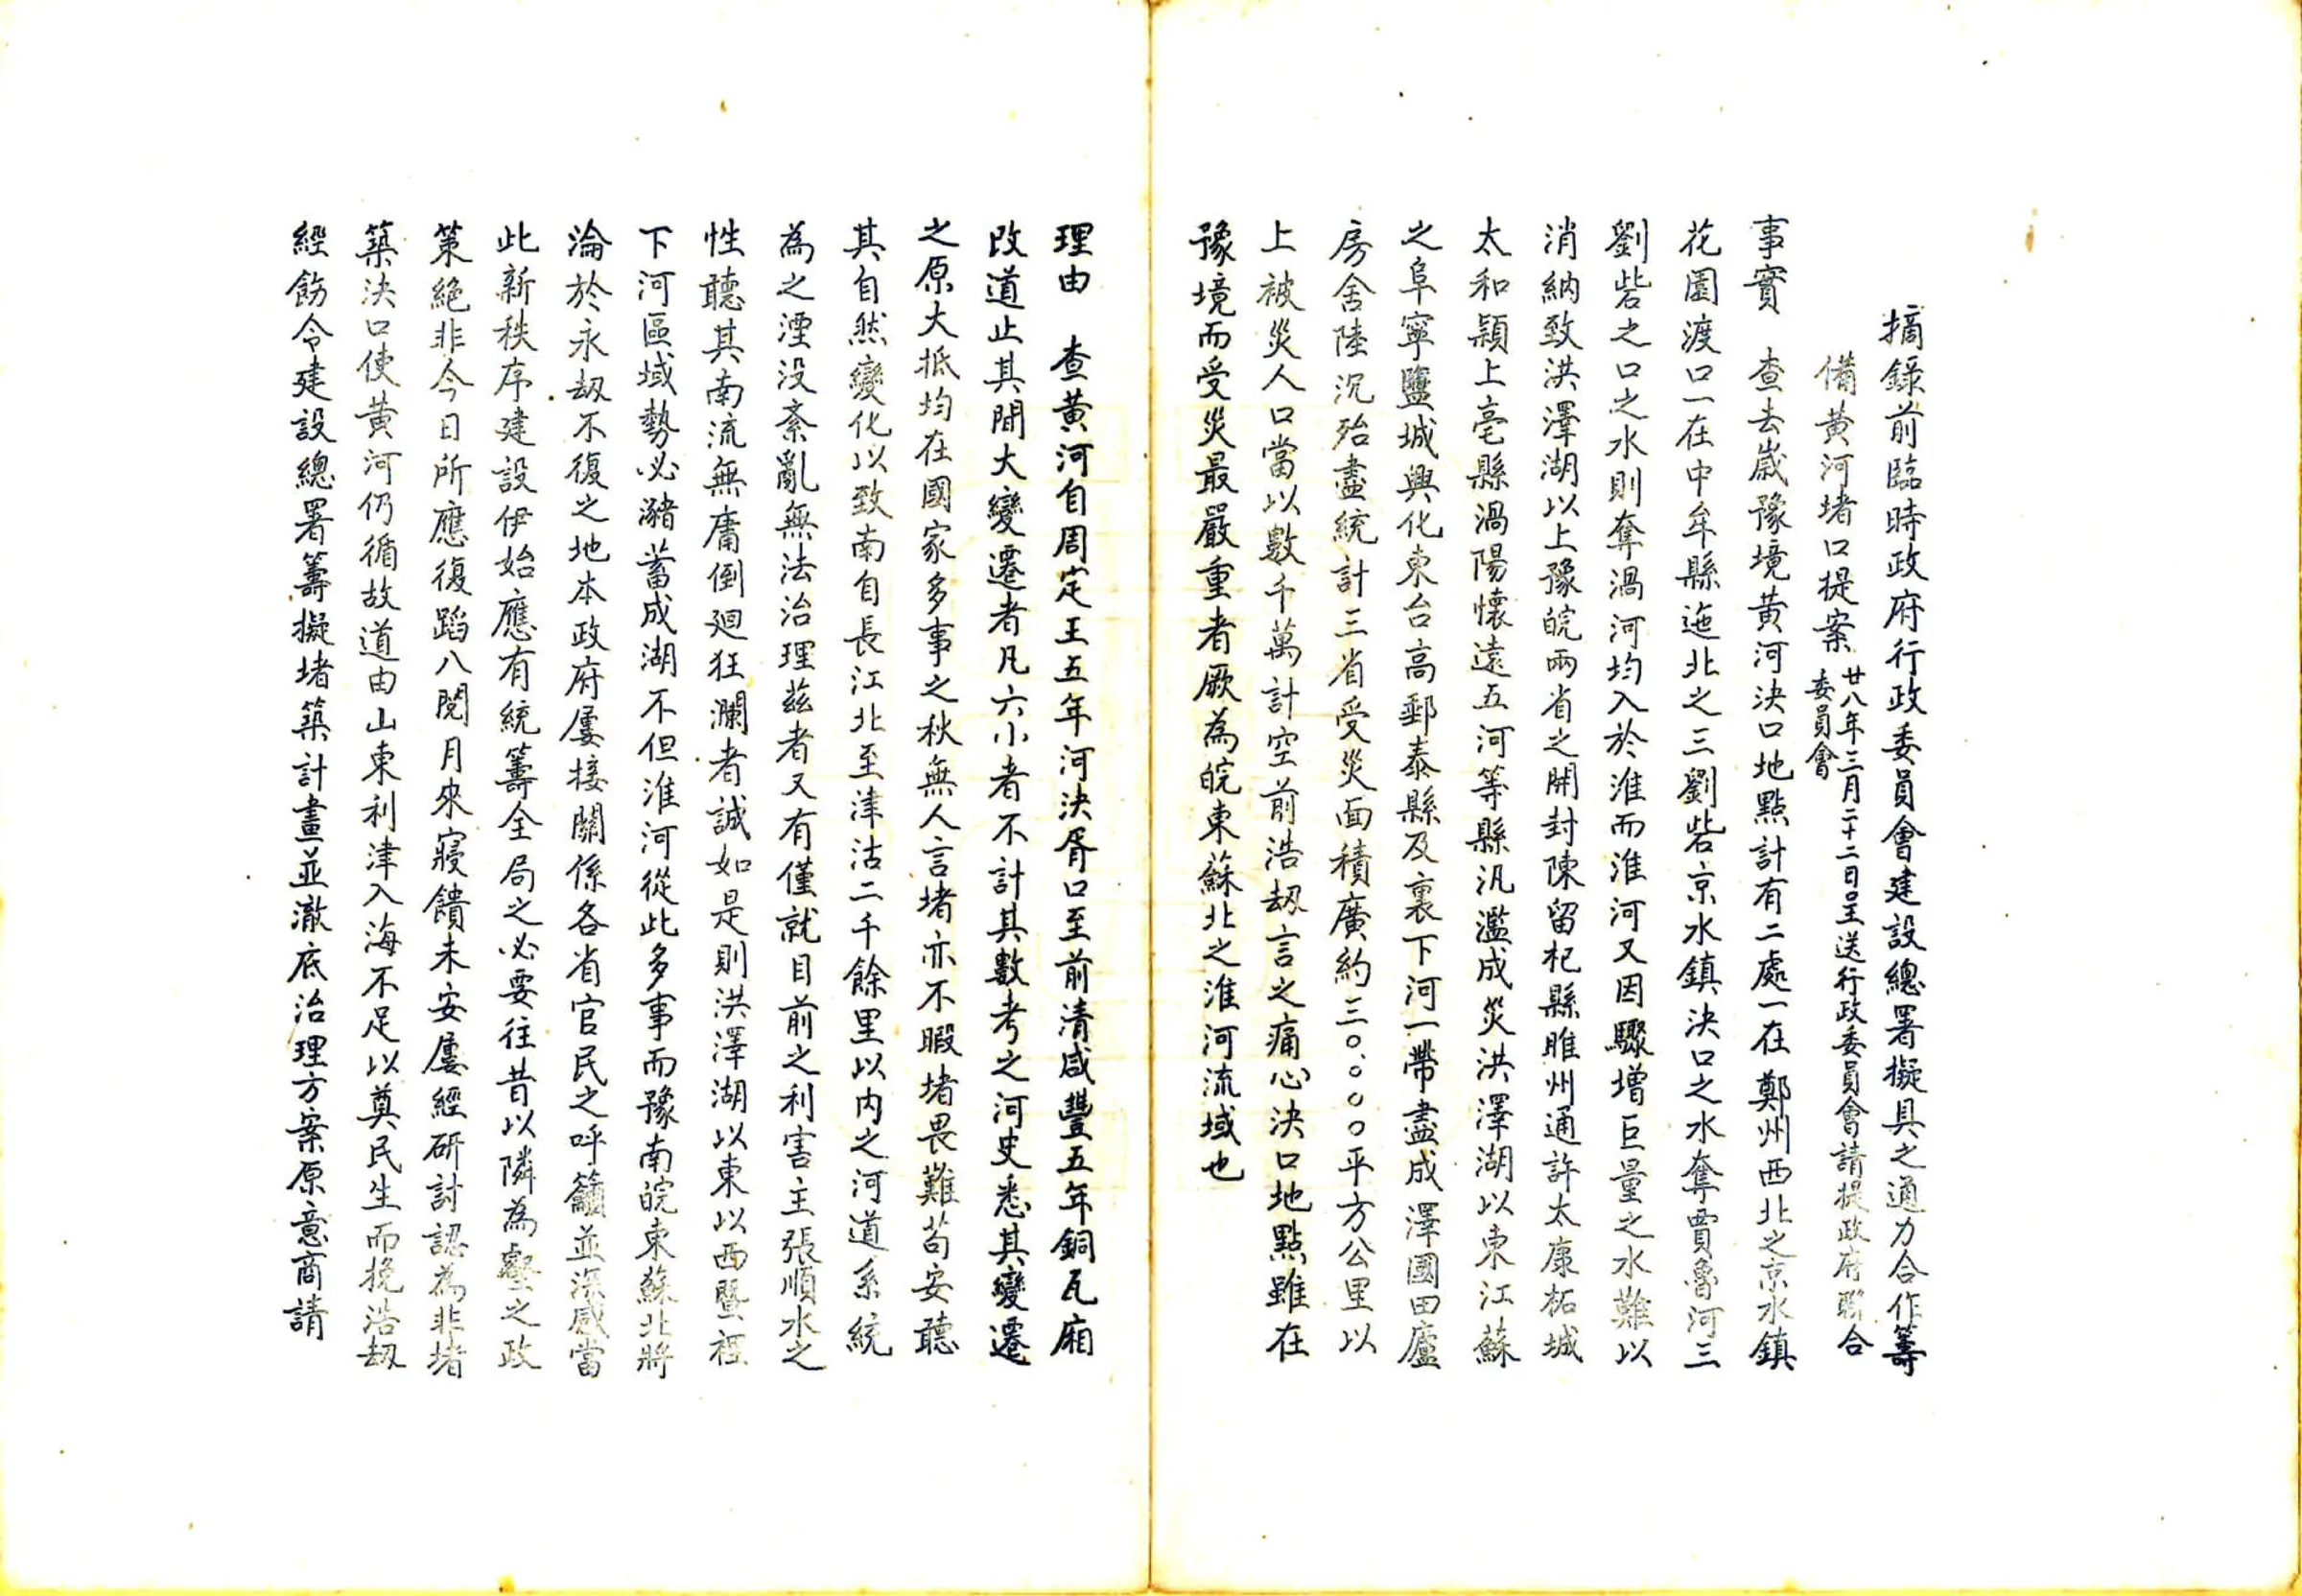 摘錄前臨時政府行政委員會建設總署擬具之通力合作籌
備黃河堵口提案 廿八年三月二十二日呈送行政委員會請提政府聯合
委員會
事實 查去歲豫境黃河決口地點計有二處一在鄭州西北之京水鎮
花園渡口一在中牟縣迤北之三劉砦京水鎮決口之水奪賈魯河三
劉砦之口之水則奪渦河均入於淮而淮河又因驟增巨量之水難以
消納致洪澤湖以上豫皖兩省之開封陳留杞縣睢州通許太康柘城
太和潁上亳縣渦陽懷遠五河等縣汎濫成災洪澤湖以東江蘇
之阜寧鹽城興化東台高郵泰縣及裏下河一帶盡成澤國田廬
房舍陸沉殆盡統計三省受災面積廣約三〇.〇〇〇平方公里以
上被災人口當以數千萬計空前浩劫言之痛心決口地點雖在
豫境而受災最嚴重者厥為皖東蘇北之淮河流域也
理由 查黃河自周定王五年河決胥口至前清咸豐五年銅瓦廂
改道止其間大變遷者凡六小者不計其數考之河史悉其變遷
之原大抵均在國家多事之秋無人言堵亦不暇堵畏難苟安聽
其自然變化以致南自長江北至津沽二千餘里以內之河道系統
為之湮沒紊亂無法治理茲者又有僅就目前之利害主張順水之
性聽其南流無庸倒迴狂瀾者誠如是則洪澤湖以東以西暨裡
下河區域勢必瀦蓄成湖不但淮河從此多事而豫南皖東蘇北將
淪於永劫不復之地本政府屢接關係各省官民之呼籲並深感當
此新秩序建設伊始應有統籌全局之必要往昔以隣為壑之政
策絕非今日所應復蹈八閱月來寢饋未安屢經研討認為非堵
築決口使黃河仍循故道由山東利津入海不足以奠民生而挽浩劫
經飭令建設總署籌擬堵築計畫並澈底治理方案原意商請